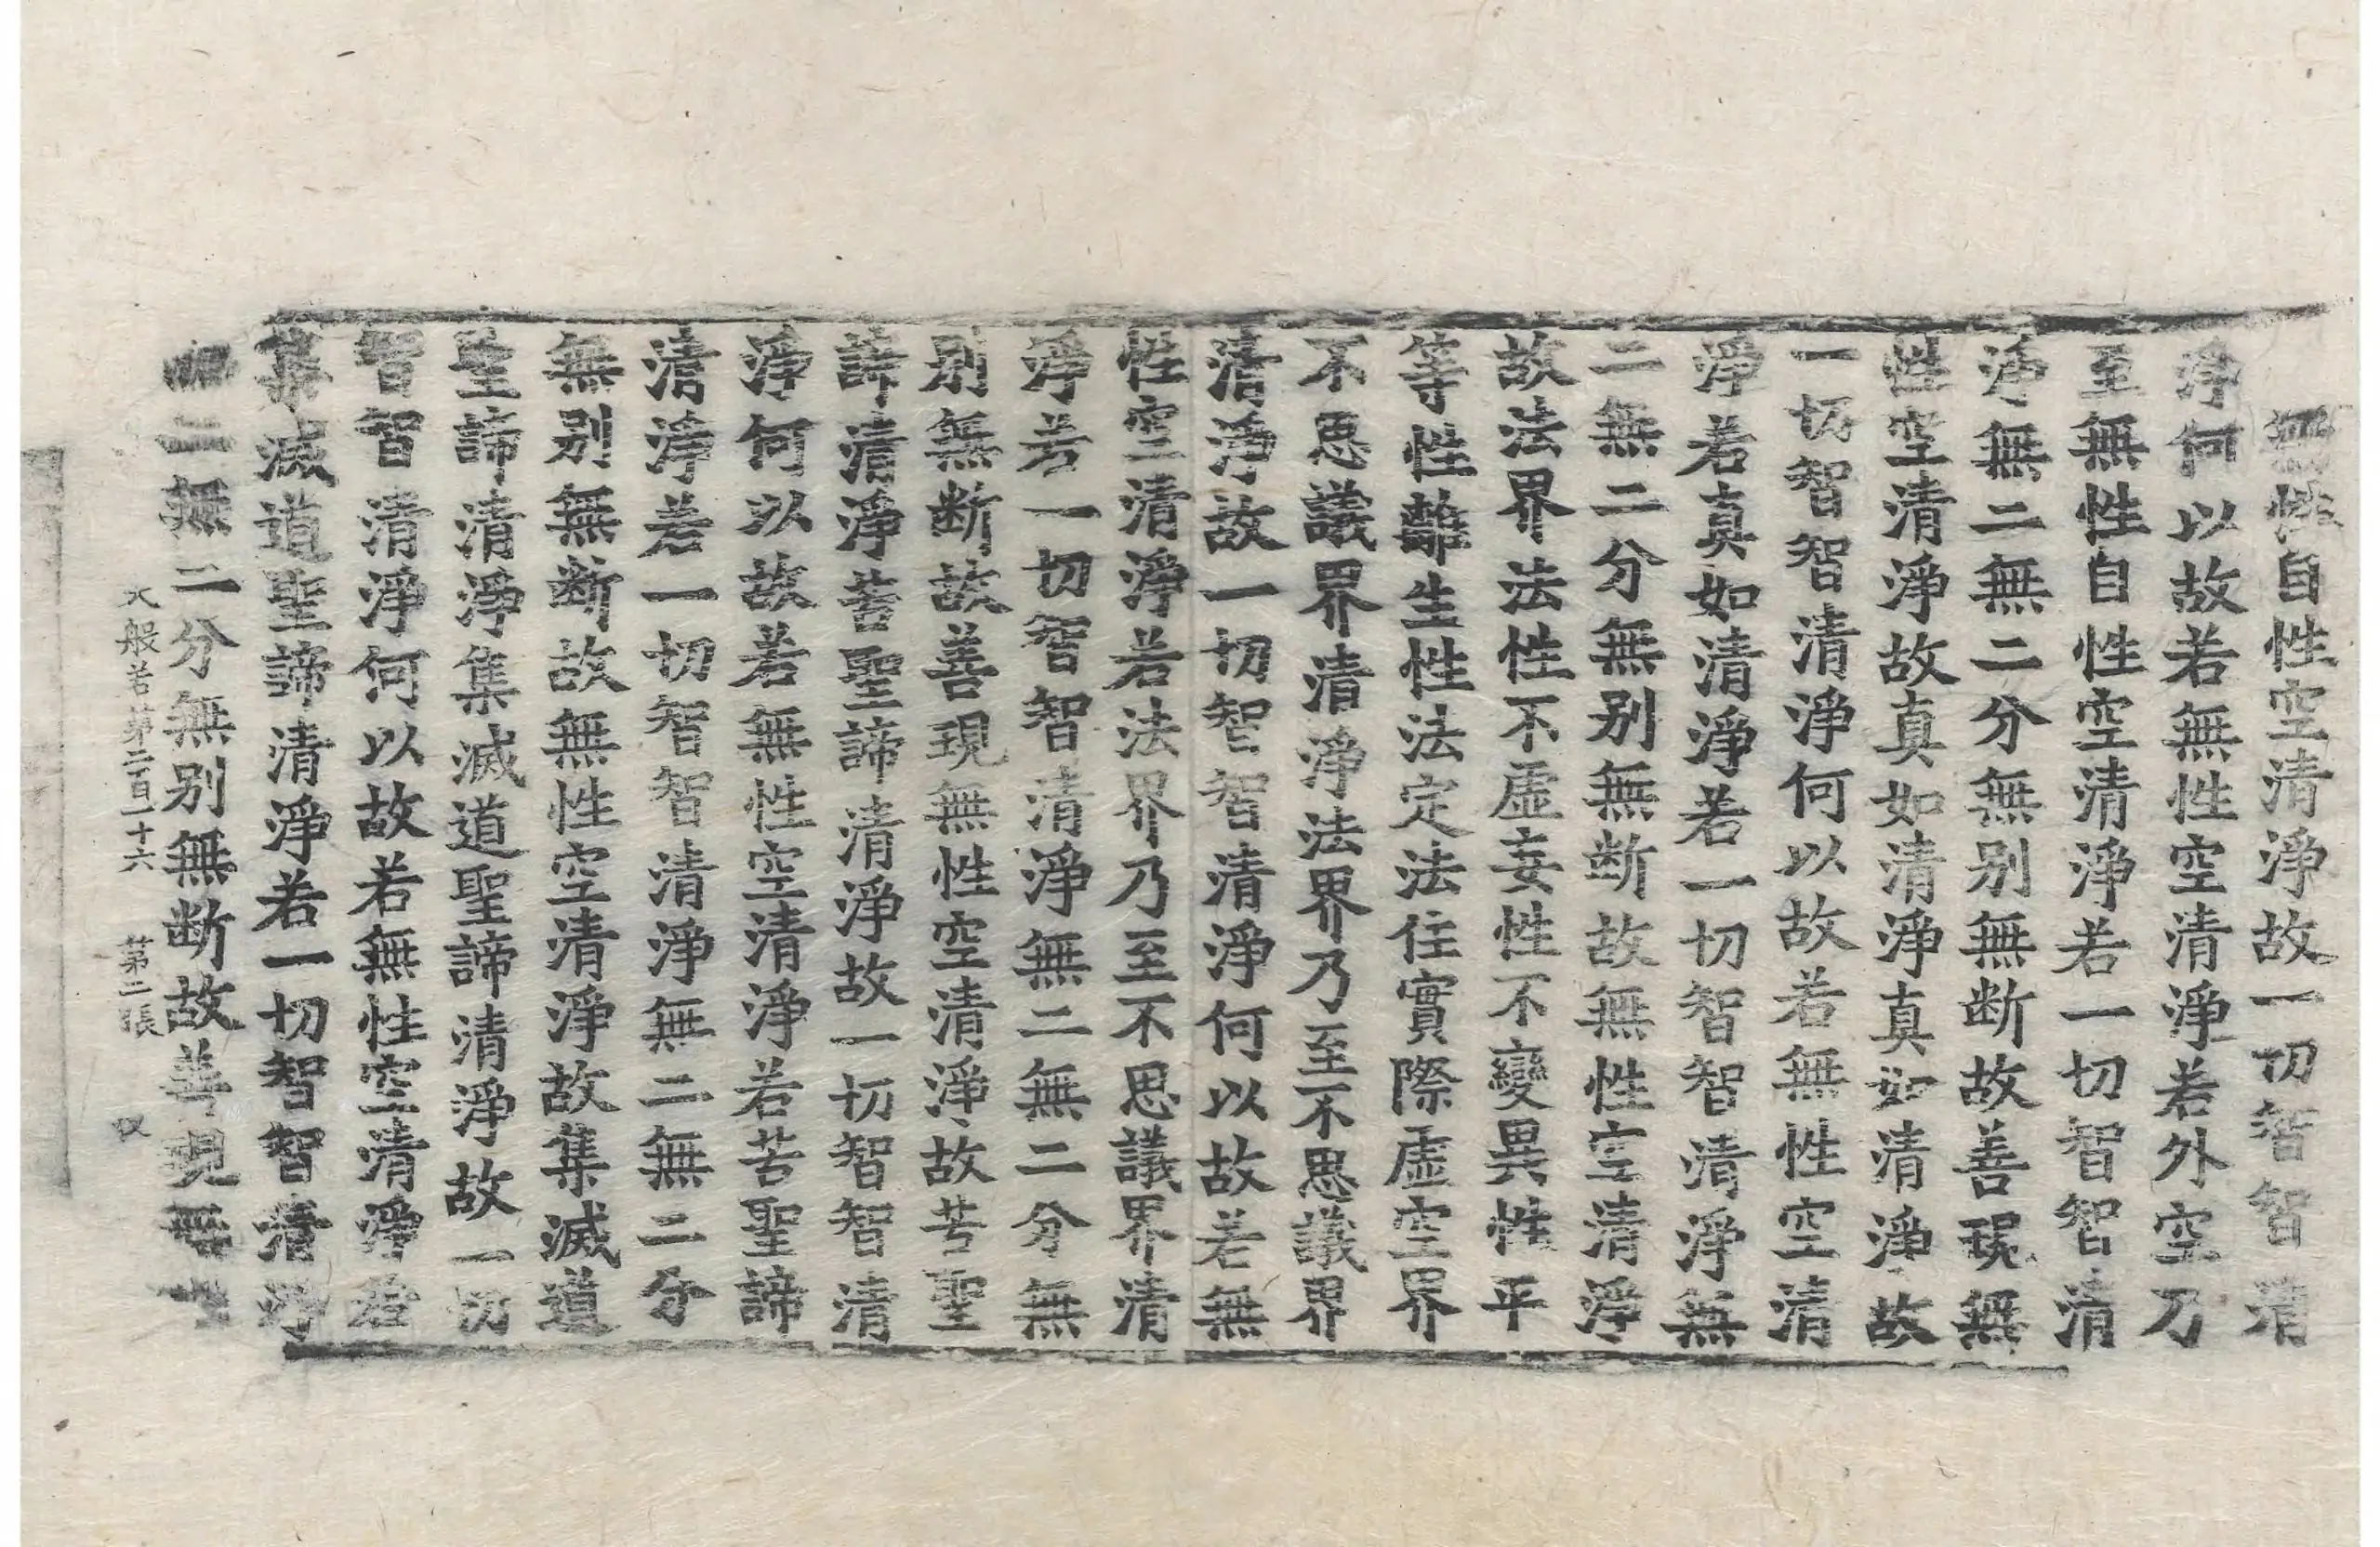 無性自性空清淨故一切智智清
淨何以故若無性空清淨若外空乃
至無性自性空清淨若一切智智清
淨無二無二分無別無斷故善現無
性空清淨故真如清淨真如清淨故
一切智智清淨何以故若無性空清
淨若真如清淨若一切智智清淨無
二無二分無別無断故無性空清淨
故法界法性不虛妄性不變異性平
等性離生性法定法住實際虛空界
不思議界清淨法界乃至不思議界
清淨故一切智智清淨何以故若無
性空清淨若法界乃至不思議界清
淨若一切智智清淨無二無二分無
別無断故善現無性空清淨故苦聖
諦清淨苦聖諦清淨故一切智智清
淨何以故若無性空清淨若苦聖諦
清淨若一切智智清淨無二無二分
無別無断故無性空清淨故集滅道
聖諦清淨集滅道聖諦清淨故一切
智智清淨何以故若無性空清淨若
集滅道聖諦清淨若一切智智清淨
二無二分無別無断故善現無
大般若第二百一十六 第二張